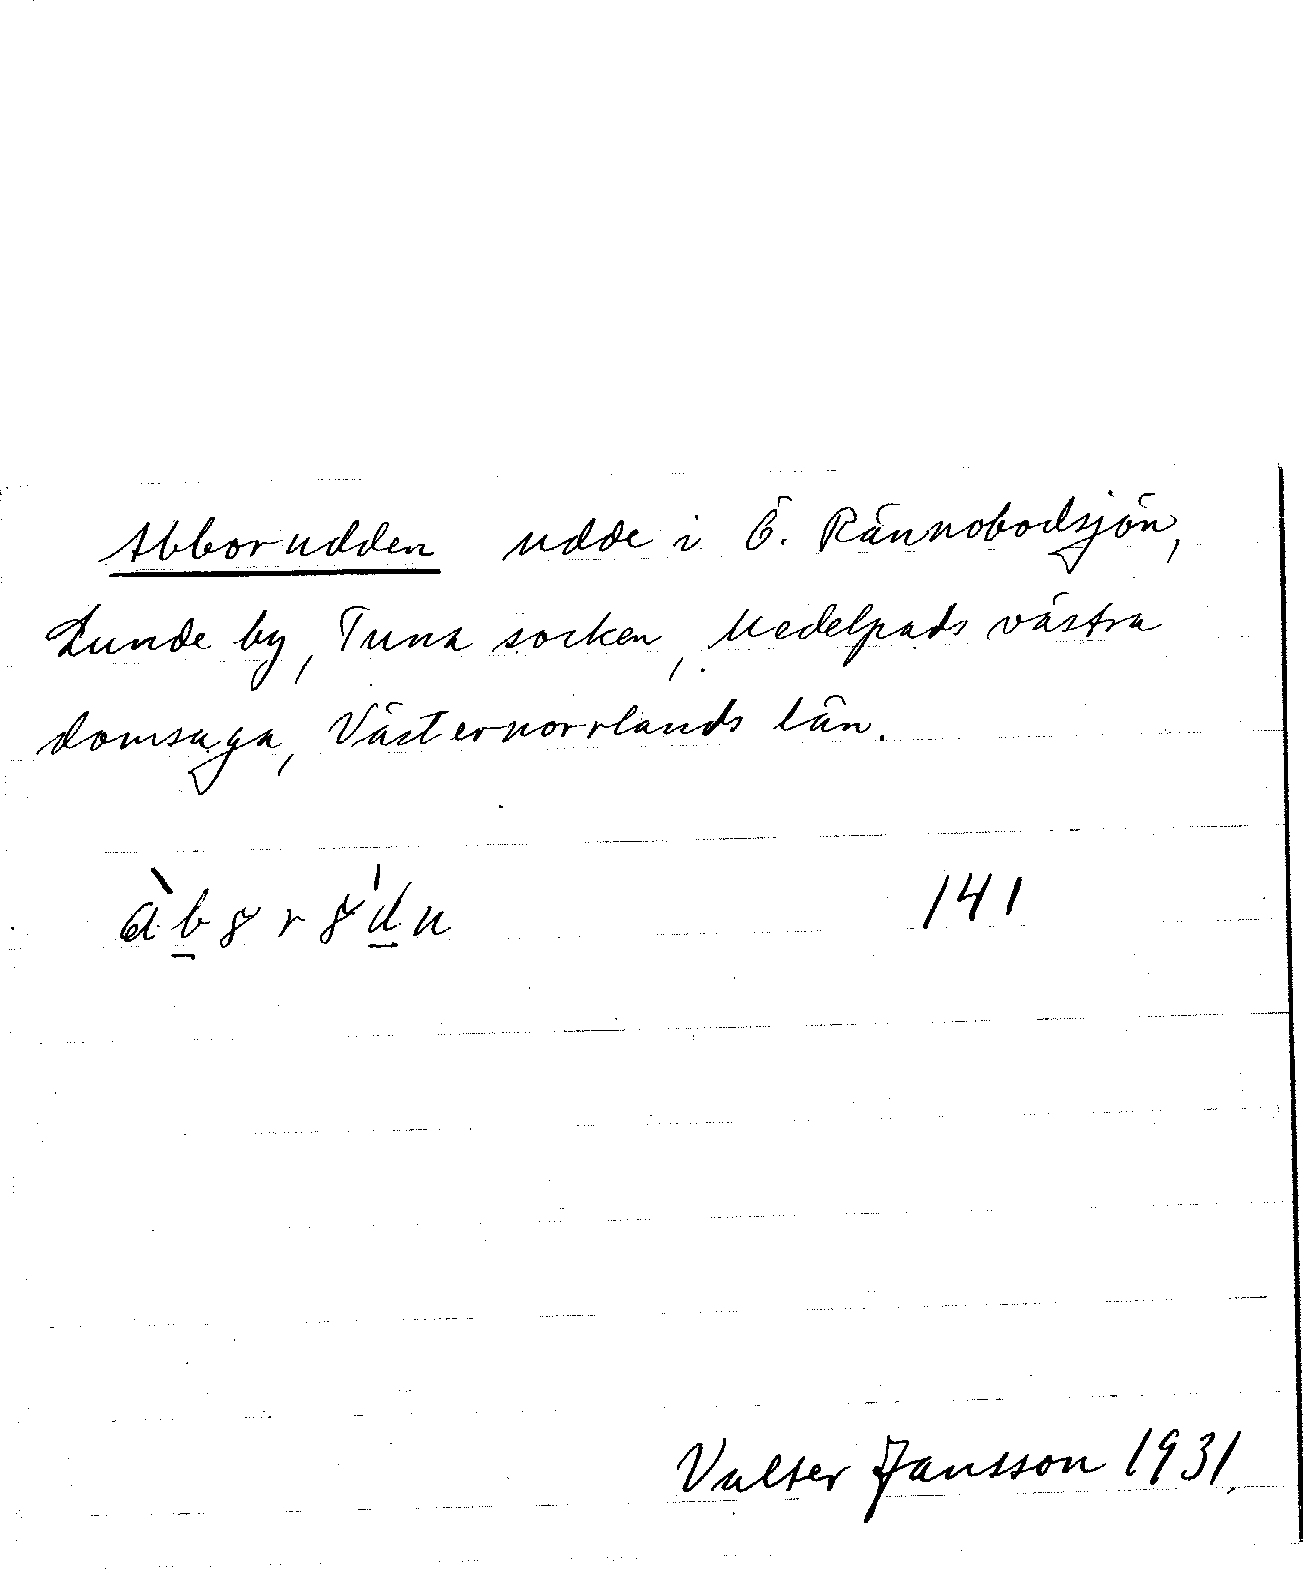 Abborudden udde i Ö. Rännobodsjön,
Lunde by, Tuna socken, Medelpads västra
domsaga, Västernorrlands län.
141
Valter Jansson 1931.